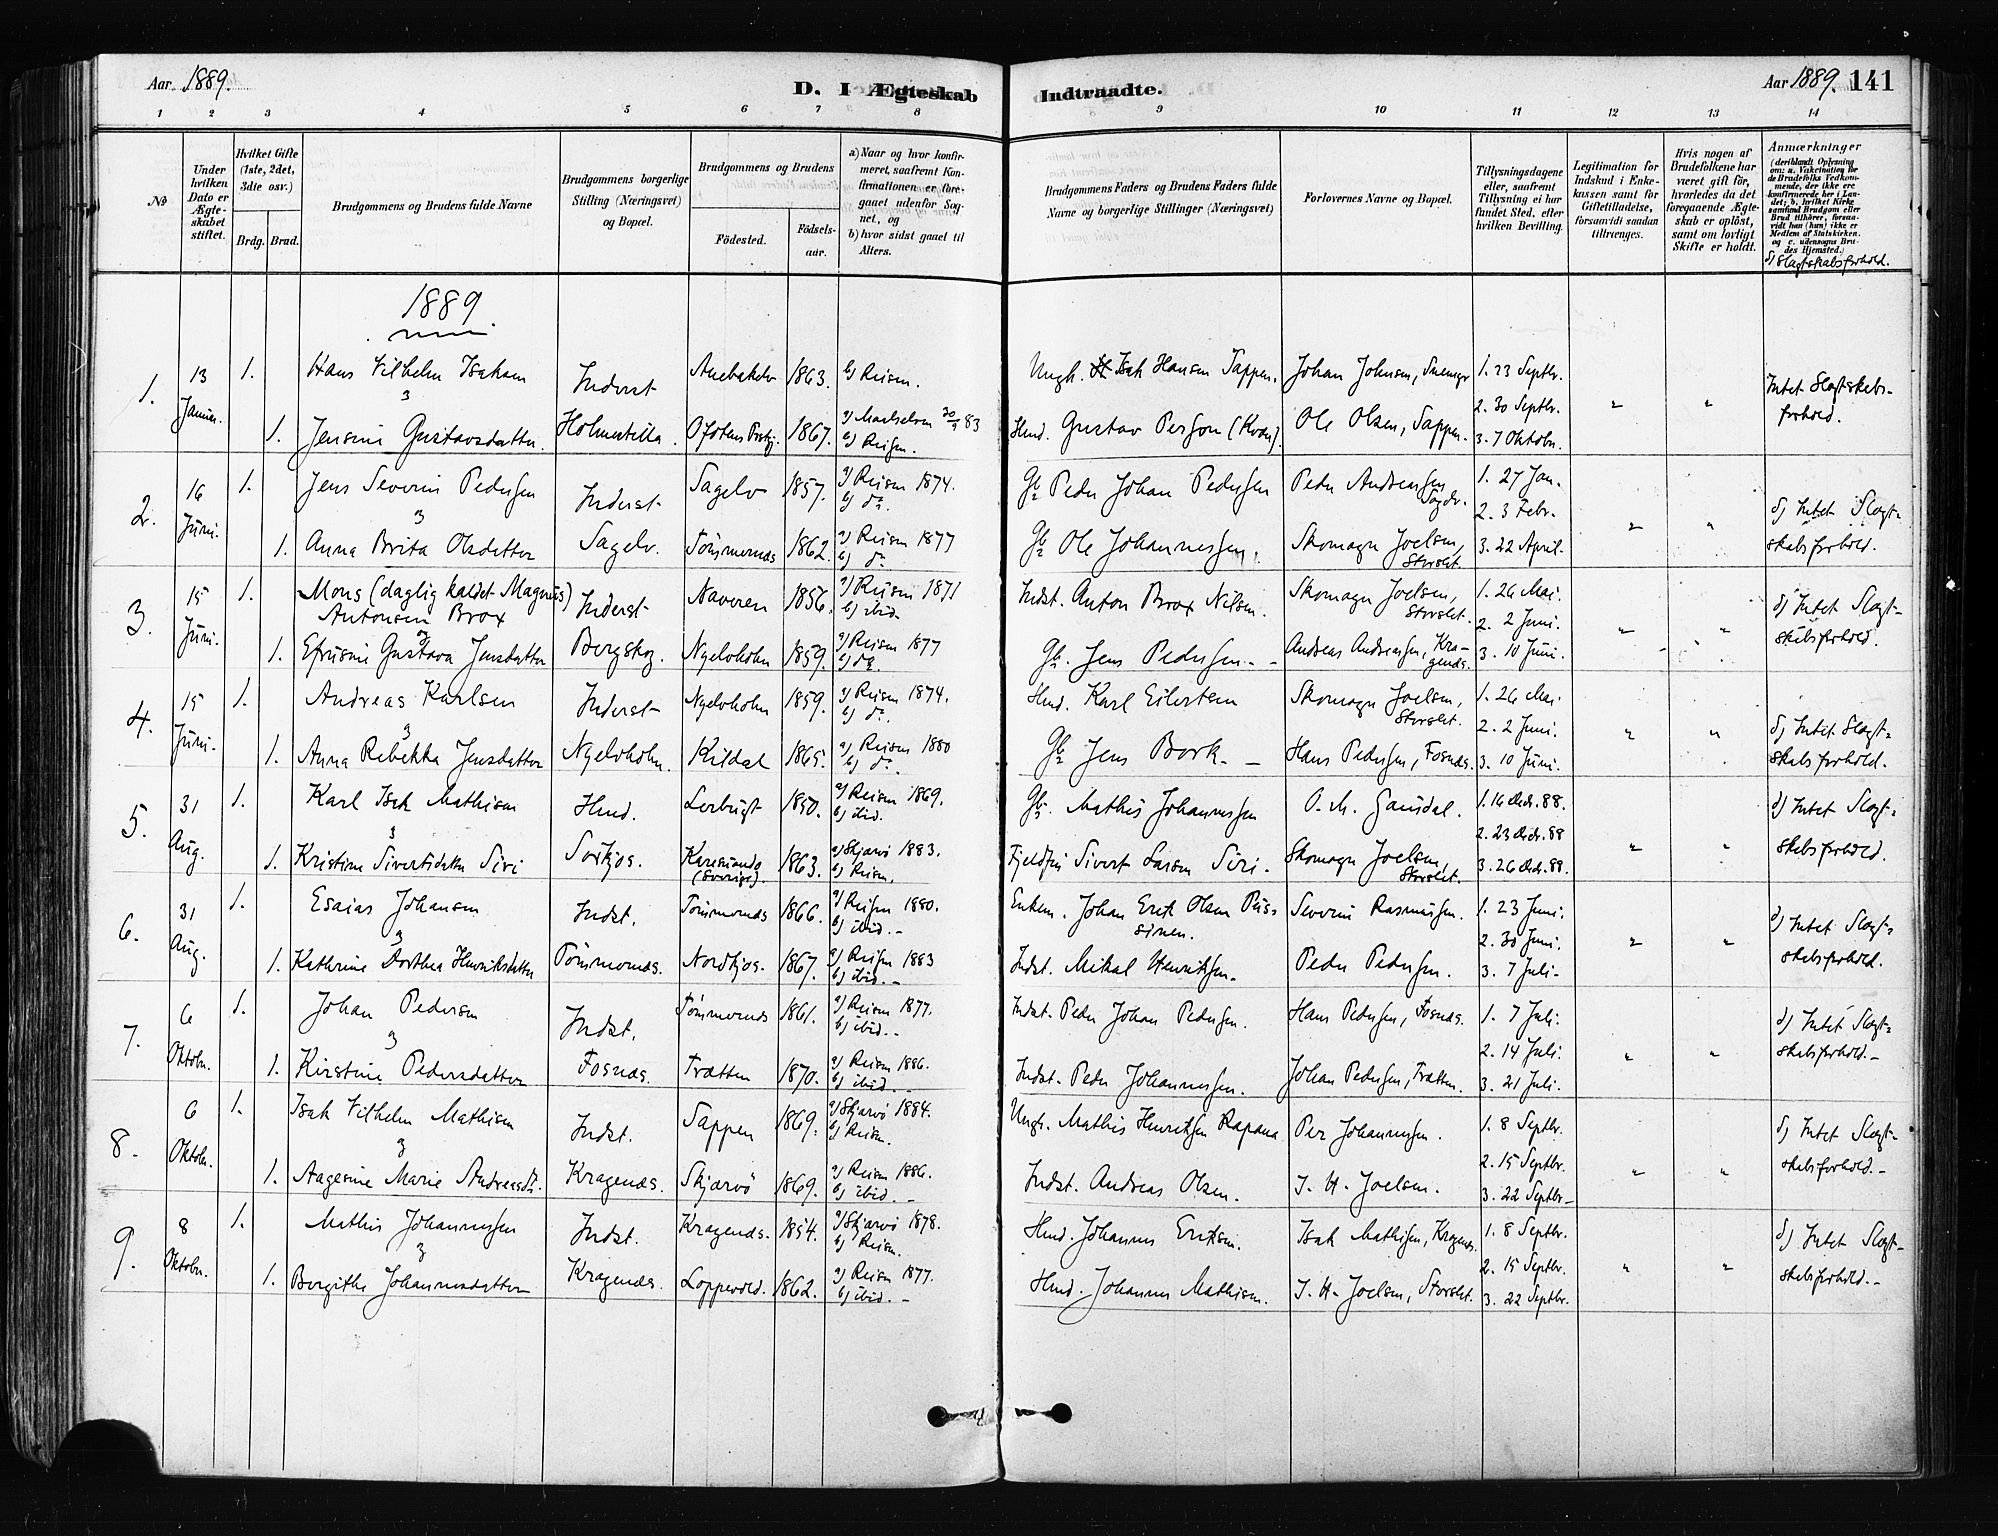 Aar 1889.
D. I Ægteskab Indtraadte.
Aar 1889. 141
1 2 3 4 5 6 7 8 9 10 11 12 13 14
No
Under hvilken Dato er Ægteskabet stiftet.
Hvilket Gifte (1ste, 2det, 3die osv.)
Brdg. Brud.
Brudgommens og Brudens fulde Navne
Brudgommens borgerlige Stilling (Næringsvei) og Bopæl.
Brudgommens og Brudens
Fødested.
Fødselsaar.
a) Naar og hvor konfirmeret, saafremt Konfirmationen er foregaaet udenfor Sognet, og
b) hvor sidst gaaet til Alters.
Brudgommens Faders og Brudens Faders fulde Navne og borgerlige Stillinger (Næringsvei)
Forlovernes Navne og Bopæl.
Tillysningsdagene eller, saafremt Tillysning ei har fundet Sted, efter hvilken Bevilling.
Legitimation for Indskud i Enkekassen samt for Giftetilladelse, forsaavidt saadan tiltrænges.
Hvis nogen af Brudefolkene har været gift før, hvorledes da det foregaaende Ægteskab er opløst, samt om lovligt Skifte er holdt.
Anmærkninger (deriblandt Oplysning om: a. Vakcination for de Brudefolks Vedkommende, der ikke ere konfirmerede her i Landet; b. hvilket Kirkesamfund Brudgom eller Brud tilhører, forsaavidt han (hun) ikke er Medlem af Statskirken, og c. udensogns Brudes Hjemsted.)
d) Slægtskabsforhold.
1889.
1. 13 Januar. 1. Hans Vilhelm Isaksen Inderst 1863. b) Reisen. Ungk. Isak Hansen Sappen. Johan Johnsen, 1. 23 Septbr. Intet Slægtskabsforhold.
2. 30 Septbr. " "
& 1. Jensine Gustavsdatter. Ofotens Prstg. 1867. a) Maalselven 30/9 83 b) Reisen. Hmd. Gustav Person (Kvæn). Ole Olsen, Sappen. 3. 7 Oktobr.
2. 16 Juni. 1. Jens Severin Pedersen Inderst Sagelv 1857. a) Reisen 1874. b) do. Gb. Peder Johan Pedersen Peder Andreassen Sagelv. 1. 27 Jan.
2. 3 Febr. " " d) Intet Slægtskabsforhold.
& 1. Anna Brita Olsdatter Sagelv. Tømmernes 1862. a) Reisen 1877 b) do. Gb. Ole Johannessen. Skomager Joelsen, Storslet. 3. 22 April.
3. 15 Juni. 1. Mons (daglig kaldet Magnus) Antonsen Brox Inderst Naveren 1856. a) Reisen 1871 b) ibid. Indst. Anton Brox Nilsen. Skomager Joelsen, Storslet. 1. 26 Mai. d) Intet Slægtskabsforhold.
2. 2 Juni. " "
& 1. Efrusine Gustava Jensdatter Bergskog. Nyelvholm 1859. a) Reisen 1877 b) do. Gb. Jens Pedersen. Andreas Andreassen, Kragenæs. 3. 10 Juni.
4. 15 Juni. 1. Andreas Karlsen Inderst Nyelvholm 1859. a) Reisen 1874. b) do. Hmd. Karl Eilertsen Skomager Joelsen, Storslet. 1. 26 Mai
2. 2 Juni. " " d) Intet Slægtskabsforhold.
& 1. Anna Rebekka Jensdatter Nyelvholm. Kildal 1865. a) Reisen 1880 b) do. Gb. Jens Bork. Hans Pedersen, Fosnæs. 3. 10 Juni.
5. 31 Aug. 1. Karl Isak Mathisen Hmd. Leirbugt 1850. a) Reisen 1869. b) ibid. Gb. Mathis Johannessen O. M. Gausdal. 1. 16 Decbr. 88. d) Intet Slægtskabsforhold.
2. 23 Decbr. 88 " "
& 1. Kristine Sivertsdatter Siri Sørkjos. Karesuando (Sverige). 1863. a) Skjervø 1883. b) Reisen. Fjeldfin Sivert Larsen Siri. Skomager Joelsen, Storslet. 3. 26 Decbr. 88.
6. 31 Aug. 1. Esaias Johansen Indst. Tømmernes 1866. a) Reisen 1880. b) ibid. Enkem. Johan Erik Olsen Severin Rasmussen. 1. 23 Juni. d) Intet Slægtskabsforhold.
2. 30 Juni. " "
& 1. Kathrine Dorthea Henriksdatter Tømmernes. Nordkjos. 1867. a) Reisen 1883 b) ibid. Indst. Mikal Henriksen. Peder Pedersen. 3. 7 Juli.
7. 6 Oktobr. 1. Johan Pedersen Indst. Tømmernes 1861. a) Reisen 1877. b) ibid. Indst. Peder Johan Pedersen. Hans Pedersen, Fosnæs. 1. 7 Juli. d) Intet Slægtskabsforhold.
2. 14 Juli. " "
& 1. Kirstine Pedersdatter Fosnæs. Trætten 1870. a) Reisen 1886. b) ibid. Indst. Peder Johannessen. Johan Pedersen, Trætten. 3. 21 Juli.
8. 6 Oktobr. 1. Isak Vilhelm Mathisen Indst. Sappen 1869. a) Skjervø 1884. b) Reisen. Ungk. Mathis Henriksen Rapana Per Johannessen. 1. 8 Septbr. d) Intet Slægtskabsforhold.
2. 15 Septbr. " "
& 1. Aagesine Marie Andreasdtr. Kragenæs. Skjervø 1869. a) Reisen 1886. b) ibid. Indst. Andreas Olsen. J. H. Joelsen. 3. 22 Septbr.
9. 8 Oktobr. 1. Mathis Johannessen Indst. Kragenæs. 1854. a) Skjervø 1878. b) Reisen. Hmd. Johannes Eriksen. Isak Mathisen, Kragenæs. 1. 8 Septbr. d) Intet Slægtskabsforhold.
2. 15 Septbr. " "
& 1. Bergithe Johannesdatter Kragenæs. Loppevold. 1862. a) Reisen 1877. b) ibid. Hmd. Johannes Mathisen. J. H. Joelsen, Storslet. 3. 22 Septbr.